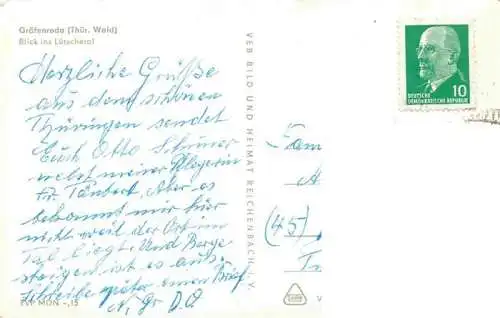 Gräfenroda (Thür. Wald)
Blick ins Lütschetal
Herzliche Grüße
aus dem schönen
Thüringen sendet
Euch Otto
nebst meiner Pflegerin
Fr. Aber es
bekommt mir hier
nicht weil der Ort im
Tal liegt. Und Berge
steigen ist es aus.
Schreibe später einen Brief
N. Gr D.O
EVP MDN -,15
VEB BILD UND HEIMAT REICHENBACH I. V.
10
DEUTSCHE
DEMOKRATISCHE REPUBLIK
Fam
(45)